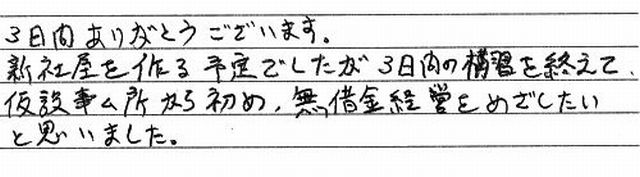 3日間ありがとうございます。
新社屋を作る予定でしたが3日間の構習を終えて、
仮設事ム所から初め、無借金経営をめざしたい
と思いました。